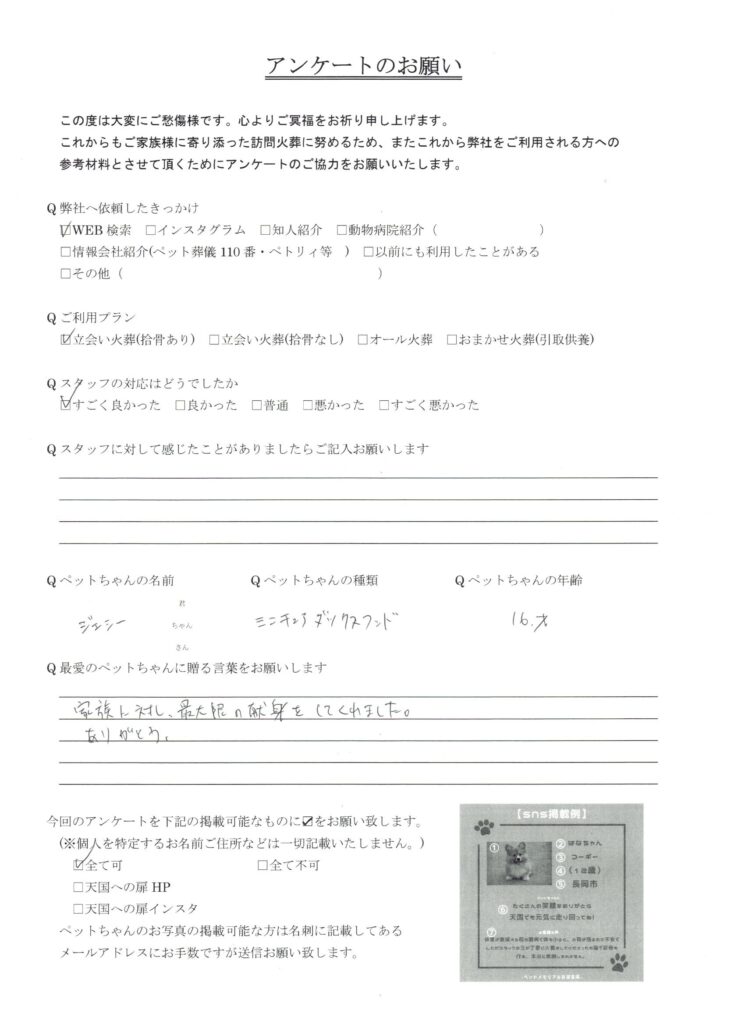 アンケートのお願い
この度は大変にご愁傷様です。心よりご冥福をお祈り申し上げます。
これからもご家族様に寄り添った訪問火葬に努めるため、またこれから弊社をご利用される方への
参考材料とさせて頂くためにアンケートのご協力をお願いいたします。
Q 弊社へ依頼したきっかけ
☑WEB 検索 □インスタグラム □知人紹介 □動物病院紹介（ ）
□情報会社紹介(ペット葬儀 110 番・ペトリィ等 ) □以前にも利用したことがある
□その他（ ）
Q ご利用プラン
☑立会い火葬(拾骨あり) □立会い火葬(拾骨なし) □オール火葬 □おまかせ火葬(引取供養)
Q スタッフの対応はどうでしたか
☑すごく良かった □良かった □普通 □悪かった □すごく悪かった
Q スタッフに対して感じたことがありましたらご記入お願いします
Q ペットちゃんの名前 Q ペットちゃんの種類 Q ペットちゃんの年齢
君
ジェシー ちゃん ミニチュアダックスフンド 16.才
さん
Q 最愛のペットちゃんに贈る言葉をお願いします
家族に対し、最大限の献身をしてくれました。
ありがとう。
今回のアンケートを下記の掲載可能なものに☑をお願い致します。
(※個人を特定するお名前ご住所などは一切記載いたしません。)
☑全て可 □全て不可
□天国への扉 HP
□天国への扉インスタ
ペットちゃんのお写真の掲載可能な方は名刺に記載してある
メールアドレスにお手数ですが送信お願い致します。
【sns掲載例】
① ② はなちゃん
③ コーギー
④ (12歳)
⑤ 長岡市
⑥ たくさんの笑顔をありがとな
天国でも元気に走り回ってね!
⑦